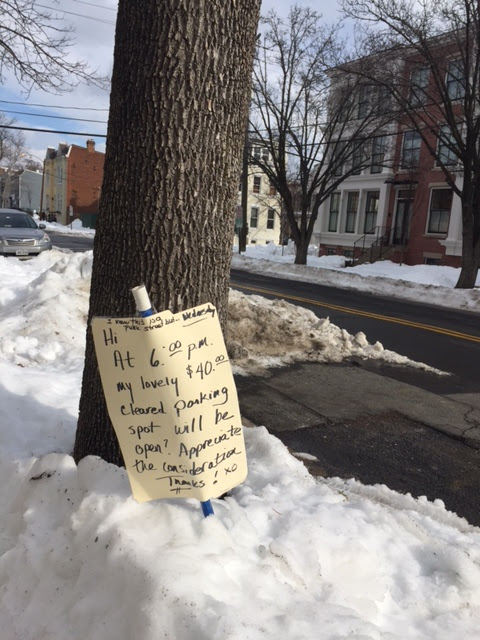 I know this is a
public street but.. Wednesday
Hi
At 6:00 p.m.
my lovely $40.00
cleared parking
spot will be
open? Appreciate
the consideration
Thanks! xo